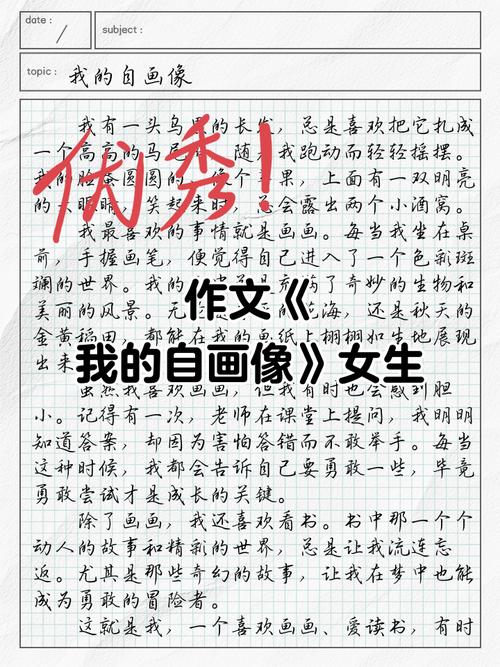 date：
subject：
topic： 我的自画像
我有一头乌黑的长发，总是喜欢把它扎成
一个高高的马尾 随 我跑动而轻轻摇摆。
我的脸蛋圆圆的 像个苹果，上面有一双明亮
的大眼睛 笑起来时 总会露出两个小酒窝。
优秀！
我最喜欢的事情就是画画。每当我坐在桌
前，手握画笔，便觉得自己进入了一个色彩斑
斓的世界。我的 充满了奇妙的生物和
美丽的风景。无 海，还是秋天的
作文《
金黄稻田，都能在我的画纸上栩栩如生地展现
出来
我的自画像》女生
虽然我喜欢画画，但我有时也会感到胆
小。记得有一次，老师在课堂上提问，我明明
知道答案，却因为害怕答错而不敢举手。每当
这种时候，我都会告诉自己要勇敢一些，毕竟
勇敢尝试才是成长的关键。
除了画画，我还喜欢看书。书中那一个个
动人的故事和精彩的世界，总是让我流连忘
返。尤其是那些奇幻的故事，让我在梦中也能
成为勇敢的冒险者。
这就是我，一个喜欢画画、爱读书，有时